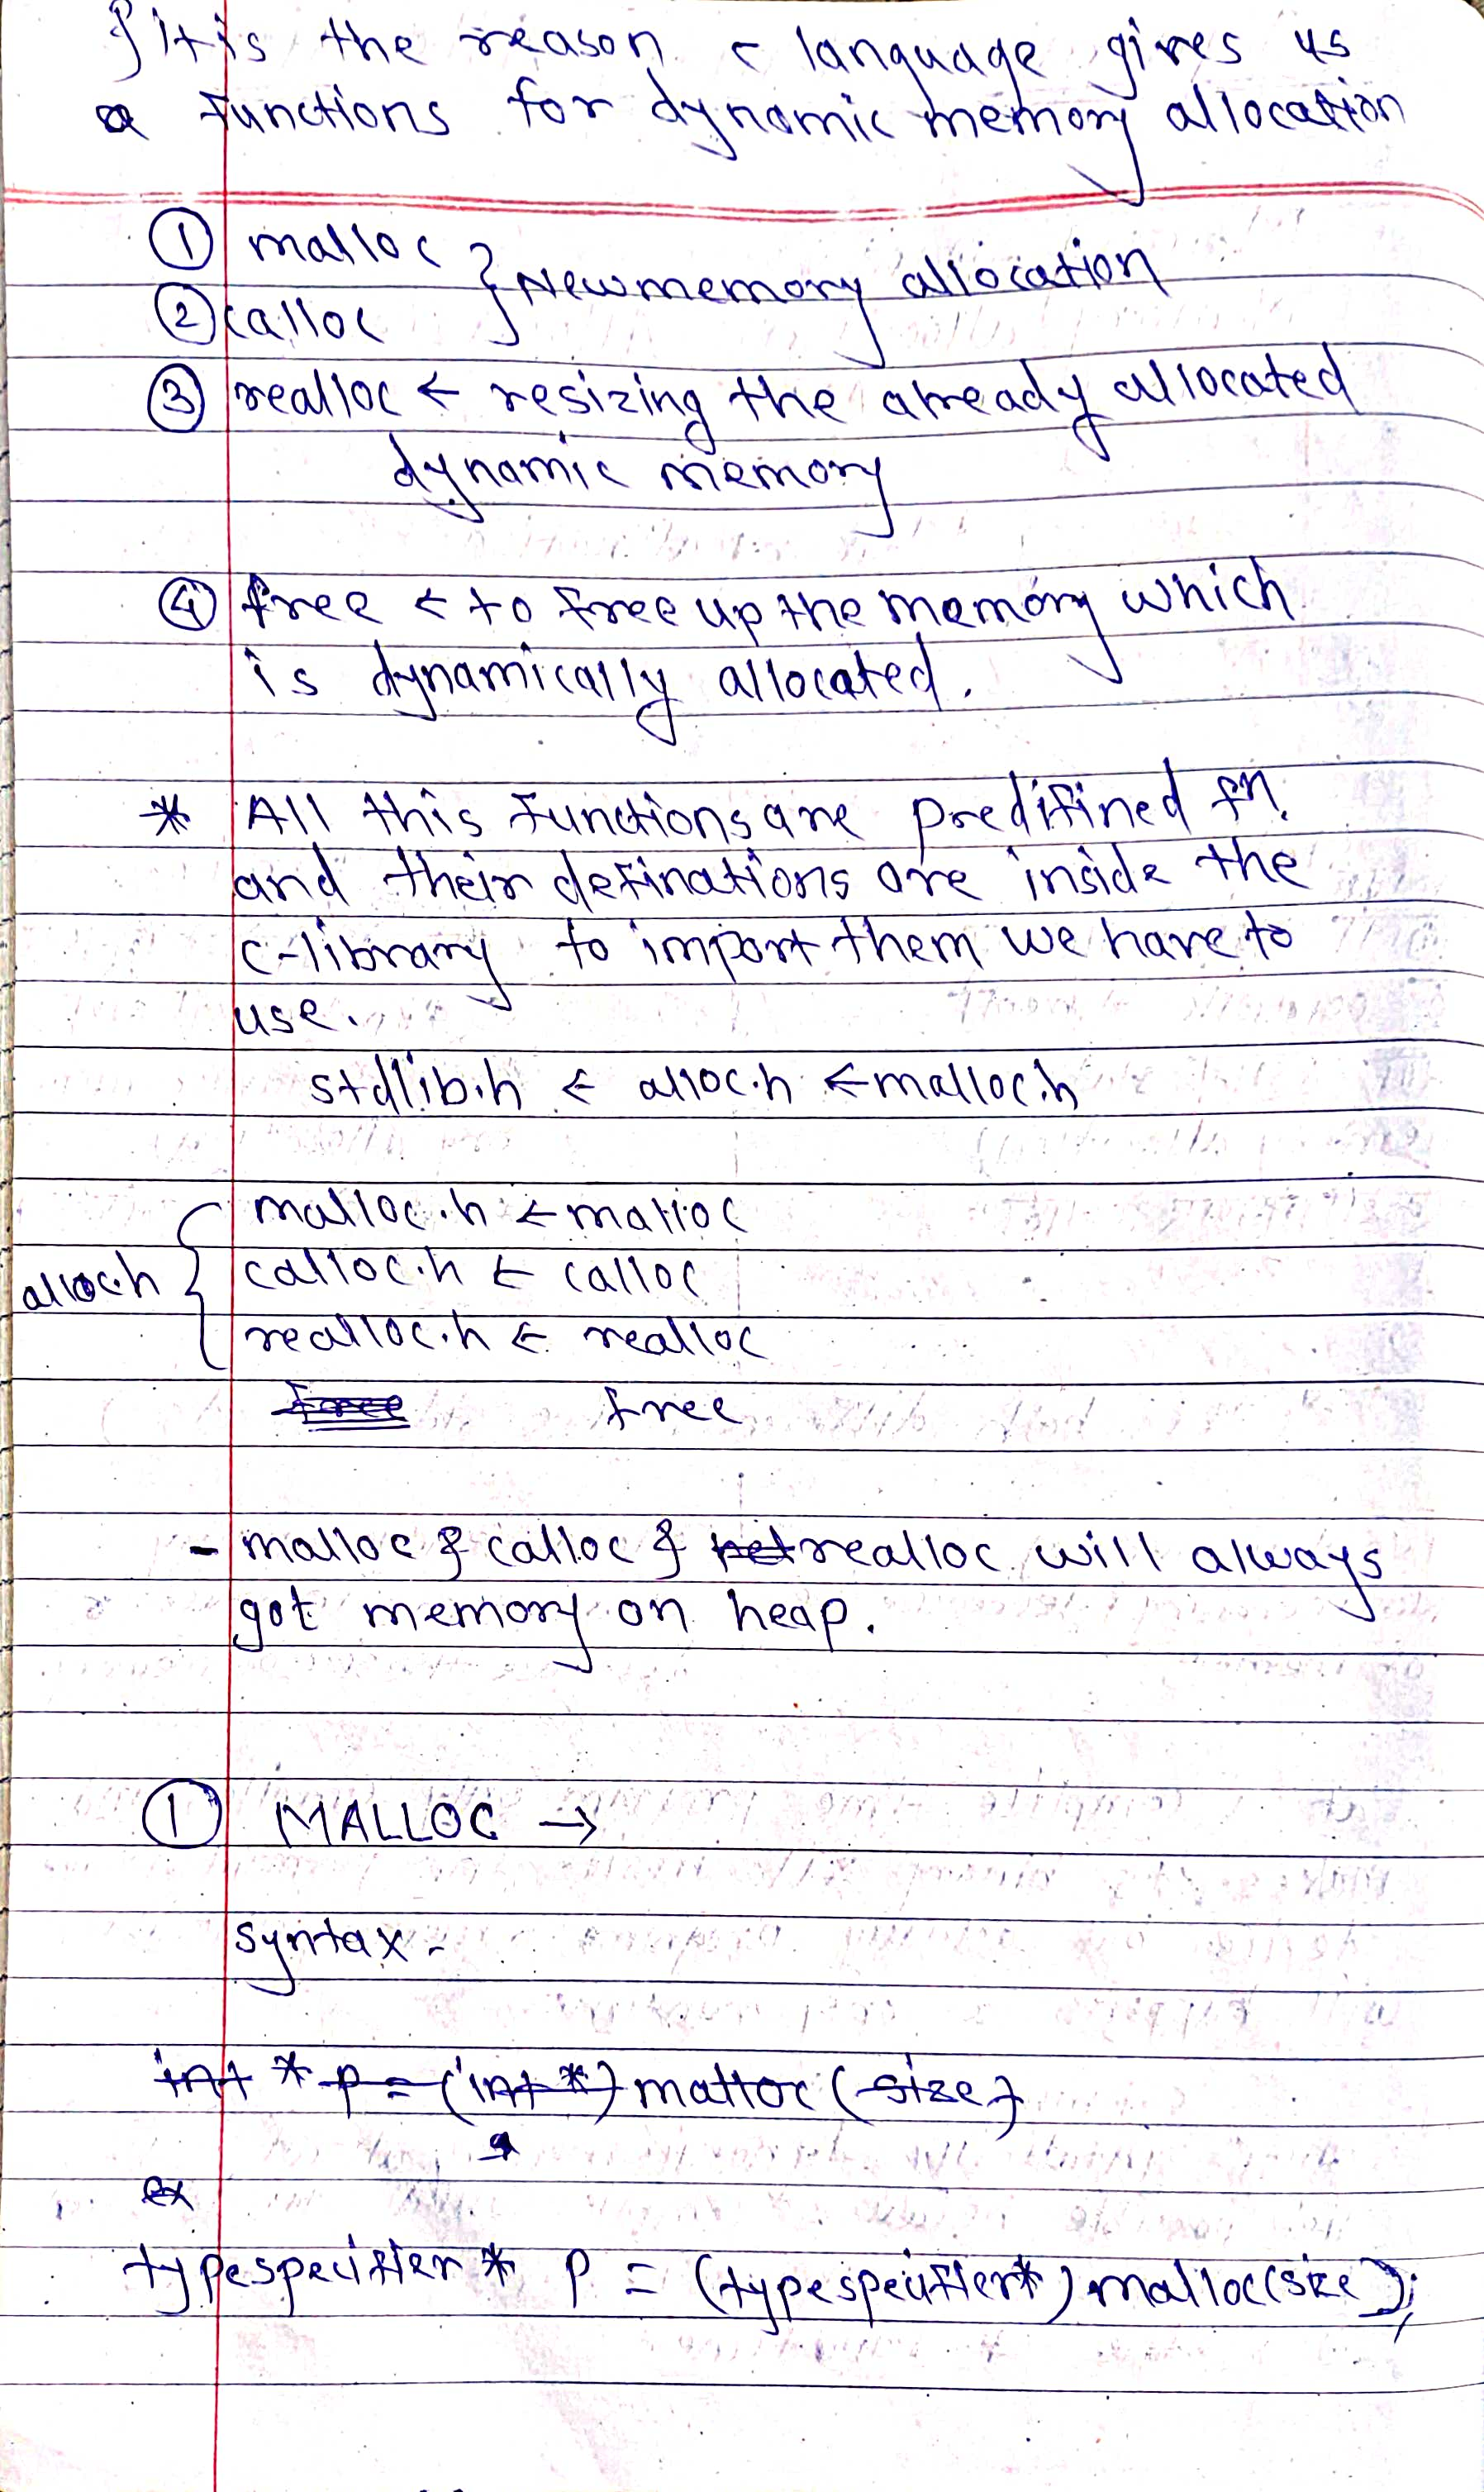 } it is the reason c language gives us
a functions for dynamic memory allocation
① malloc
} New memory allocation
② calloc
③ realloc ← resizing the already allocated
dynamic memory
④ free ← to free up the memory which
is dynamically allocated.
* All this functions are predifined fn.
and their definations are inside the
c-library to import them we have to
use.
stdlib.h ← alloc.h ← malloc.h
malloc.h ← malloc
alloc.h { calloc.h ← calloc
realloc.h ← realloc
free free
- malloc & calloc & ret realloc will always
got memory on heap.
① MALLOC →
syntax -
int * p = (int *) malloc (size)
ex
typespecifier * p = (typespecifier*) malloc(size);